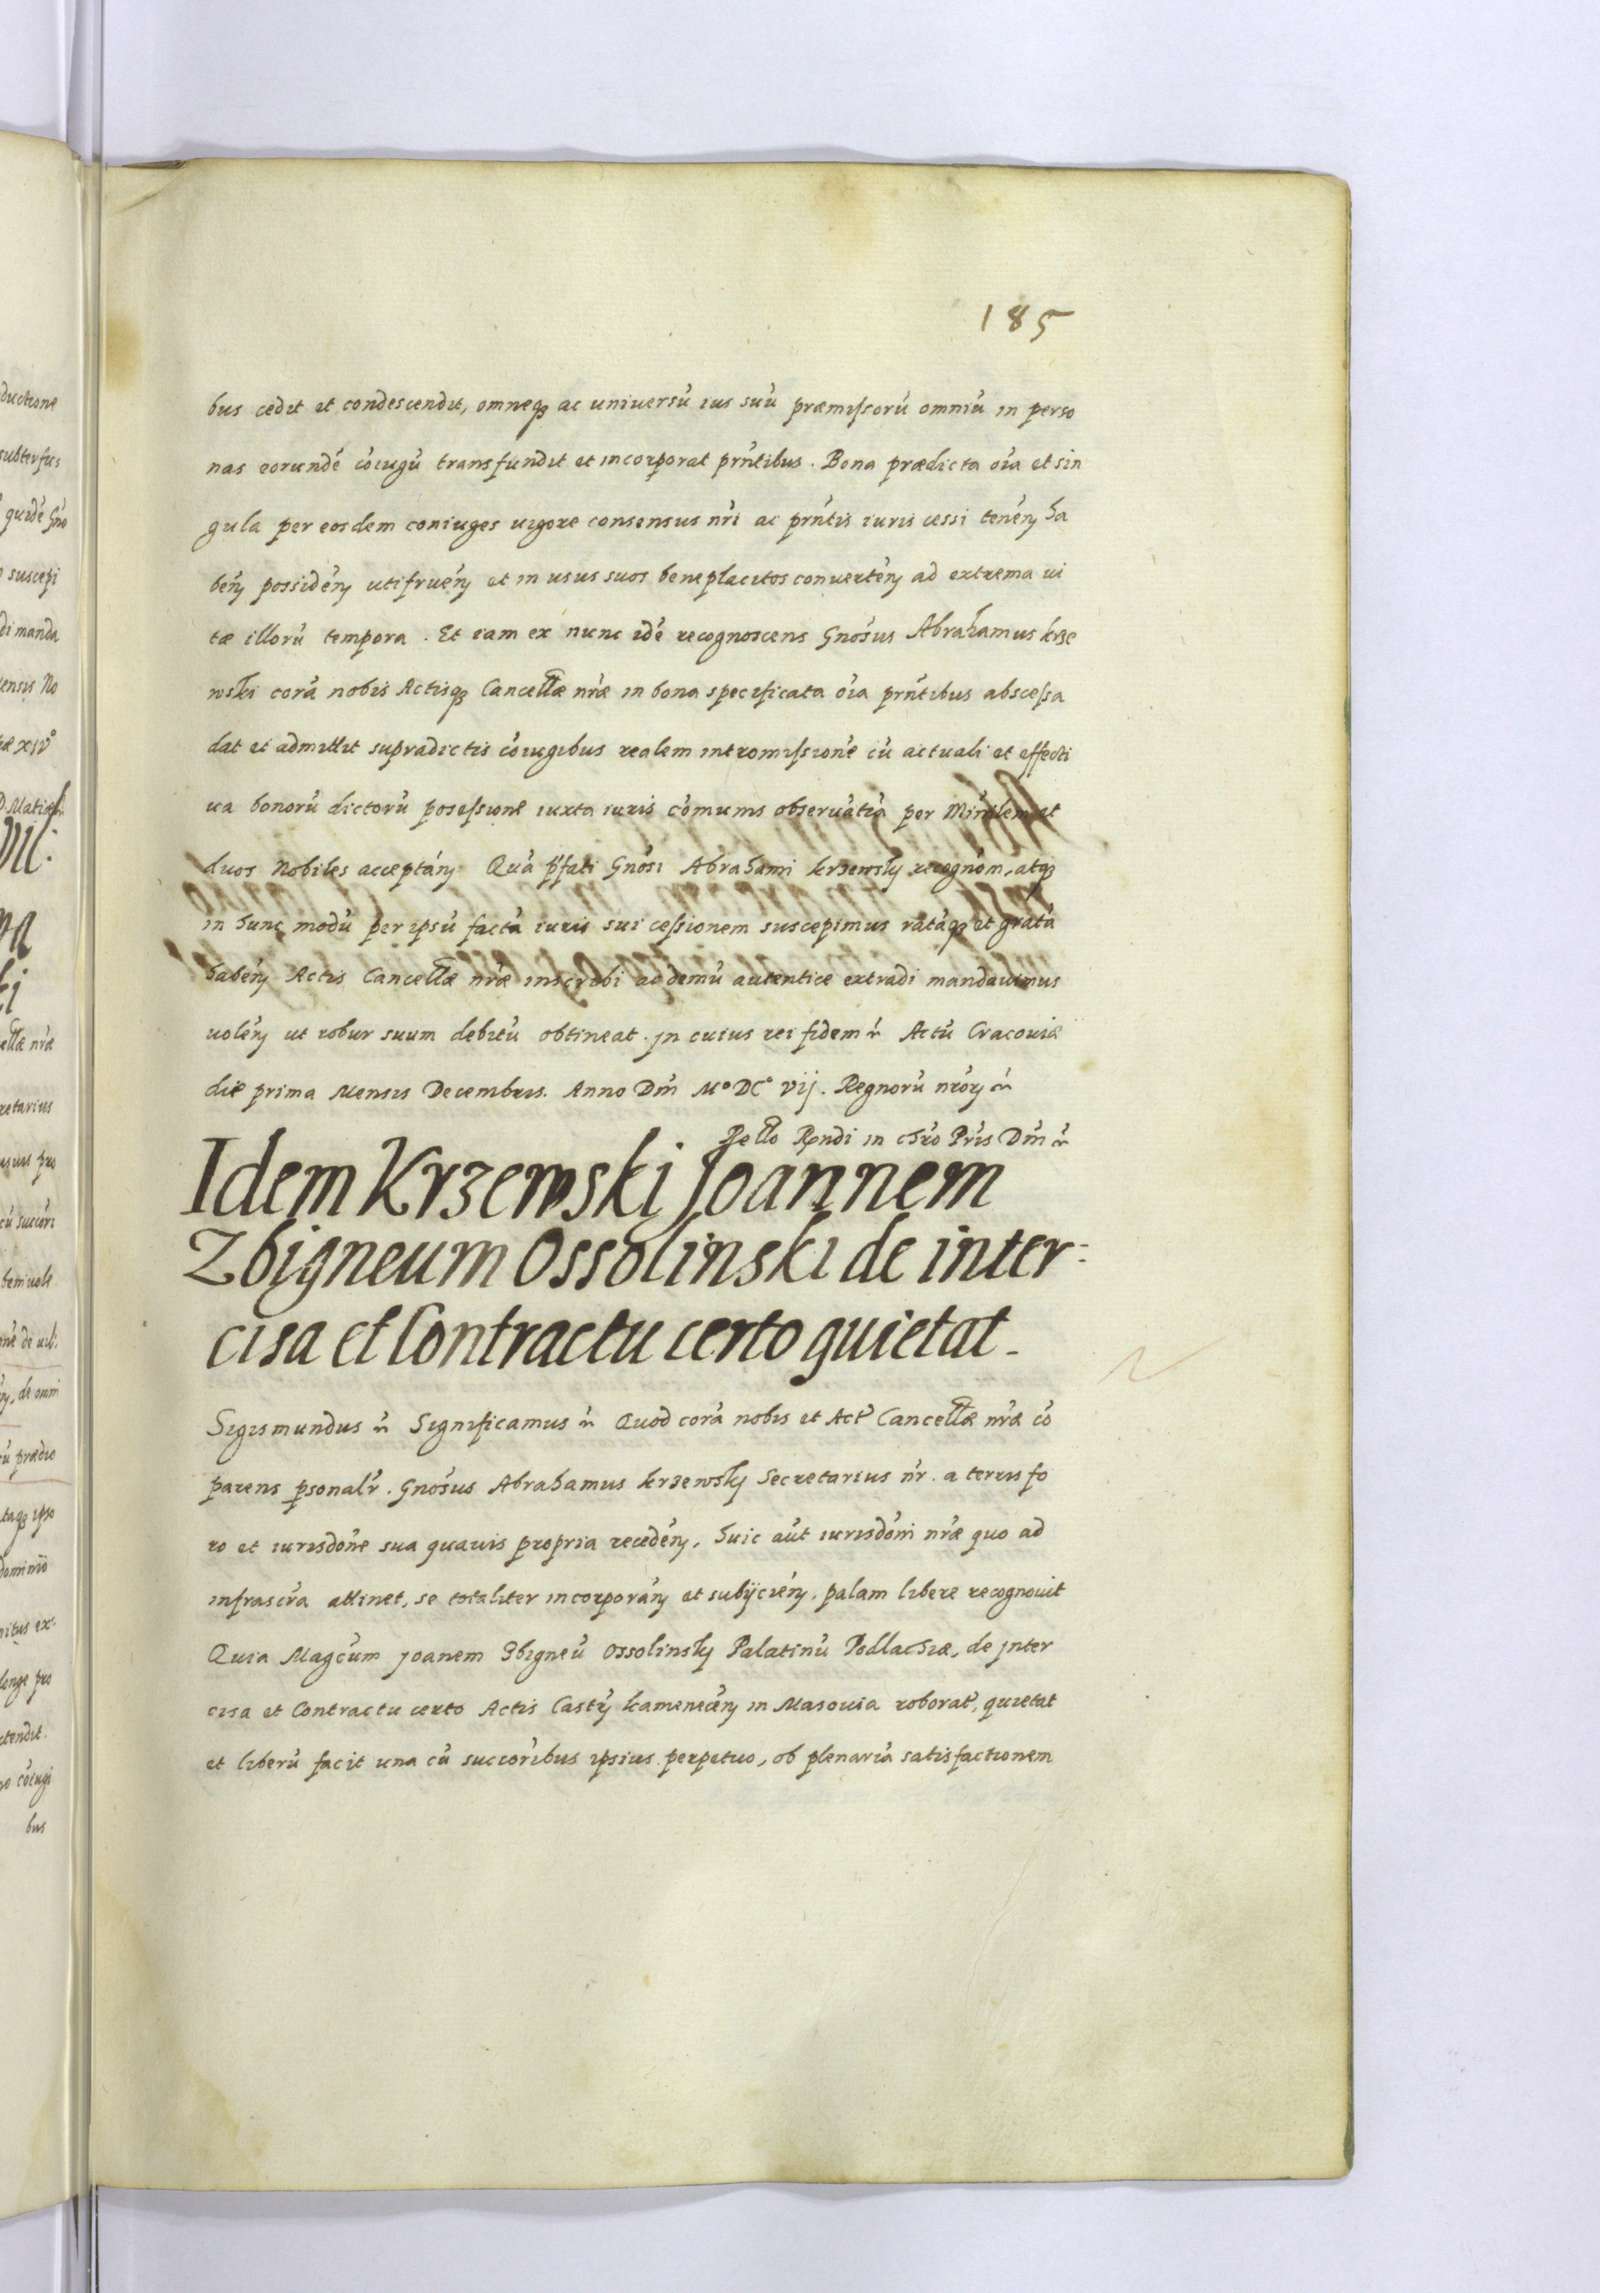 185
bus cedit et condescendit, omneq₃ ac universũ ius suũ præmissorũ omniũ in perso
nas eorundẽ cõiugũ transfundit et incorporat prñtibus. Bona prædicta oĩa et sin
gula per eosdem coniuges uigore consensus nři ac prñtis iuris cessi tenẽñ ha
beñ possideñ utifrueñ et in usus suos beneplacitos converteñ ad extrema ui
tæ illorũ tempora. Et iam ex nunc idẽ recognoscens Gnõsus Abrahamus krze
wski corã nobis Actisq₃ Cancellæ nřæ in bona specificata oĩa prñtibus abscessa
dat et admittit supradictis cõiugibus realem intromissionẽ cũ actuali et effecti
ua bonorũ dictorũ possessione iuxta iuris cõmunis obseruãtiã per Minĩlem et
duos Nobiles acceptañ Quã p̃fati Gnõsi Abrahami krzewsky recognõm, atq₃
in hunc modũ per ipsũ factã iuris sui cessionem suscepimus ratãq₃ et gratã
habeñ Actis Cancellæ nřæ inscribi ac demũ autentice extradi mandauimus
uoleñ ut robur suum debitũ obtineat. Jn cuius rei fidem ẽ Actũ Cracouiæ
die prima Mensis Decembris. Anno Dñi M° DC° vij. Regnorũ nror ẽ
Rello Rñdi in chro Pris Dñi ẽ
Idem Krzewski Joannem
Zbigneum Ossolinski de inter-
cisa et Contractu certo quietat.
Sigismundus ẽ Significamus ẽ Quod corã nobis et Act' Cancellæ nřæ cõ
parens psonalr̃. Gnõsus Abrahamus krzewsky Secretarius nr̃. a terris fo
ro et iurisdõne sua quauis propria recedeñ, huic aũt iurisdõni nřæ quo ad
infrascrã attinet, se totaliter incorporañ et subijcieñ, palam libere recognouit
Quia Magcũm Joanem Zbigneũ Ossolinsky Palatinũ Podlachiæ, de jnter
cisa et Contractu certo Actis Castr kameneceñ in Masouia roborat', quietat
et liberũ facit una cũ succoribus ipsius perpetuo, ob plenariã satisfactionem